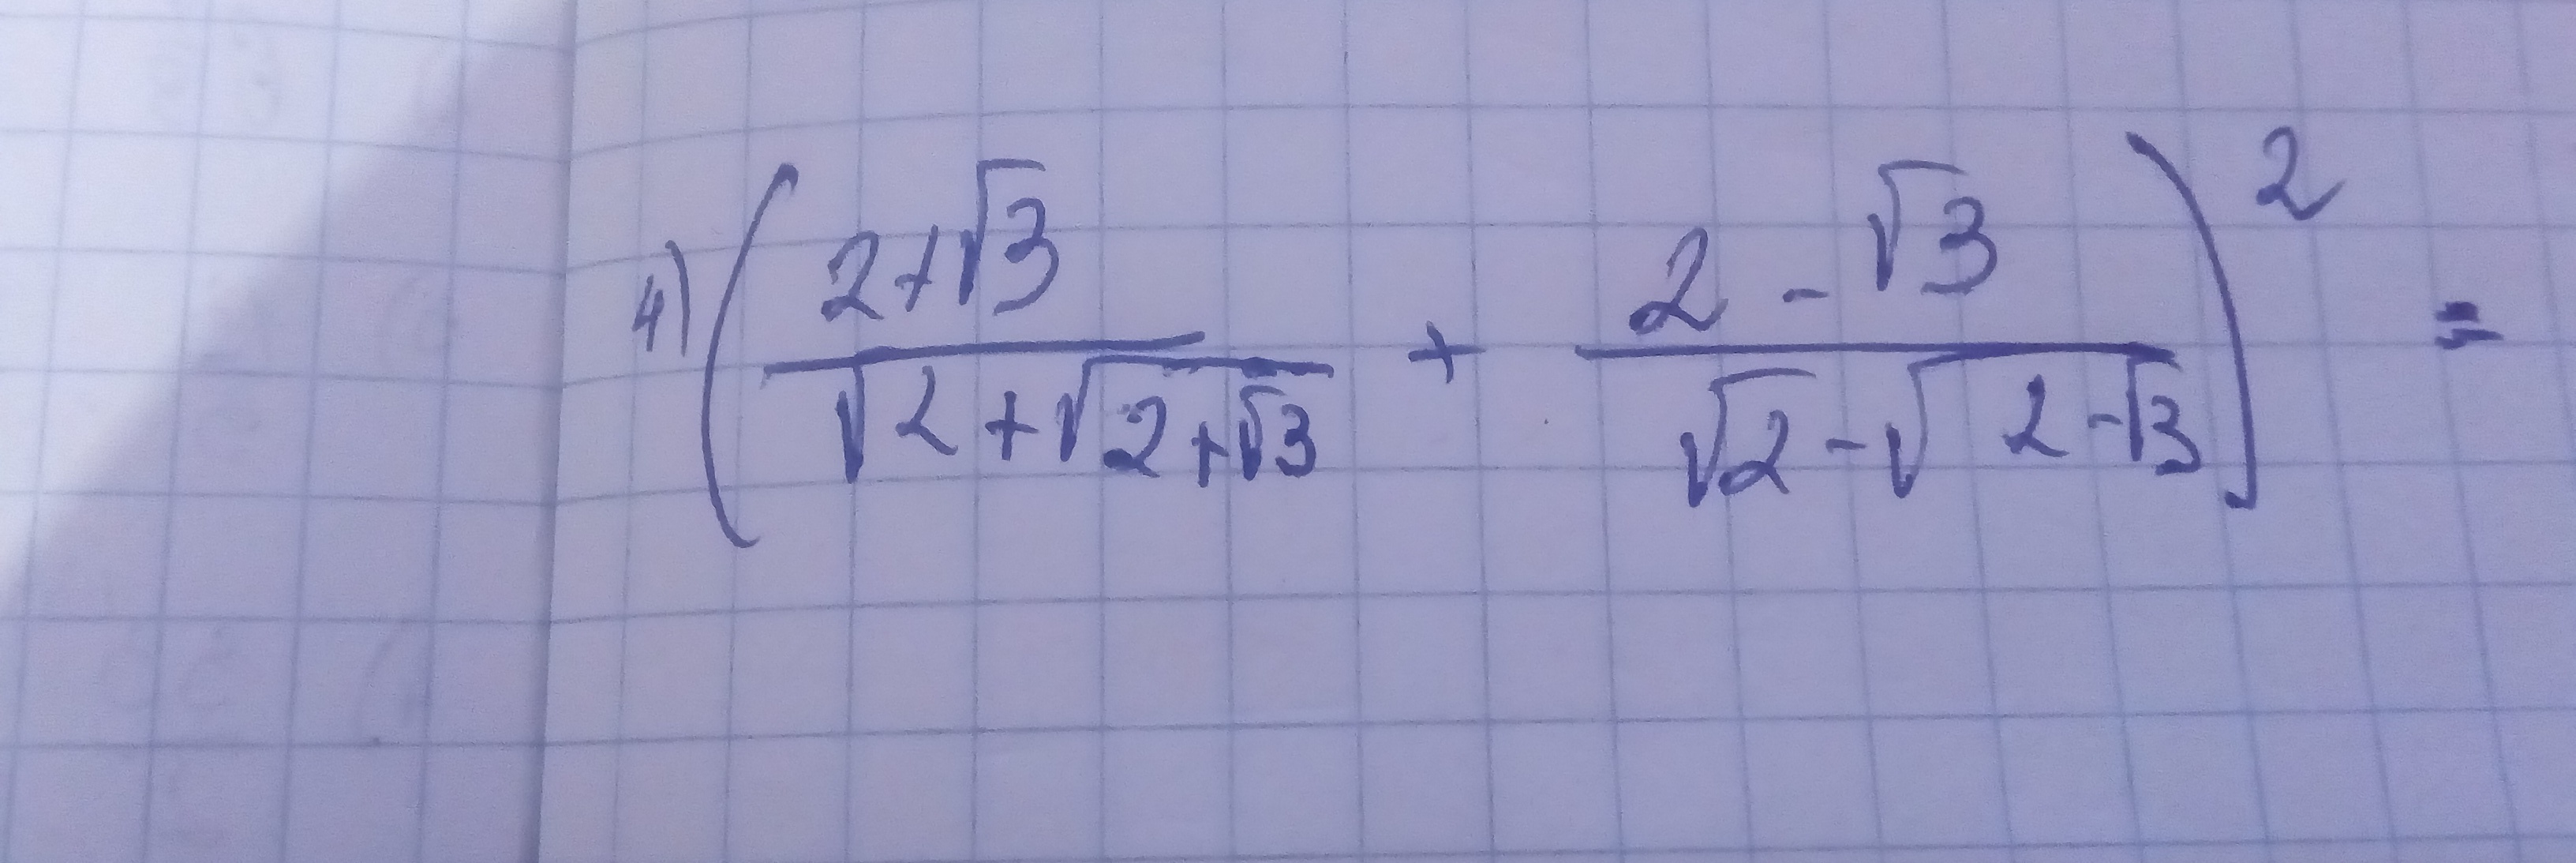 4) ( (2+√3)/(√2+√(2+√3)) + (2-√3)/(√2-√(2-√3)) )² =